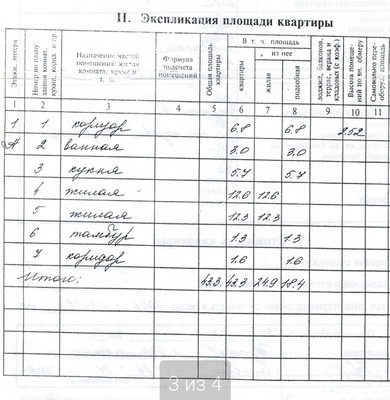 II. Экспликация площади квартиры
Этажи, литера
Номер по плану здания, комнат, кухни, корид. и др.
Назначение частей помещения: жилая комната, кухня и т. п.
Формула подсчета помещений
Общая площадь квартиры
В т. ч. площадь
квартиры
из нее
жилая
подсобная
лоджий, балконов, террас, веранд и кладовых (с коэф.)
Высота помещений по вн. обмеру
Самовольно переоборуд. площадь
1 2 3 4 5 6 7 8 9 10 11
1 1 коридор 6.8 6.8 252
2 ванная 3.0 3.0
3 кухня 5.7 5.7
4 жилая 12.6 12.6
5 жилая 12.3 12.3
6 тамбур 1.3 1.3
7 коридор 1.6 1.6
Итого: 43.3 43.3 24.9 18.4
3 из 4